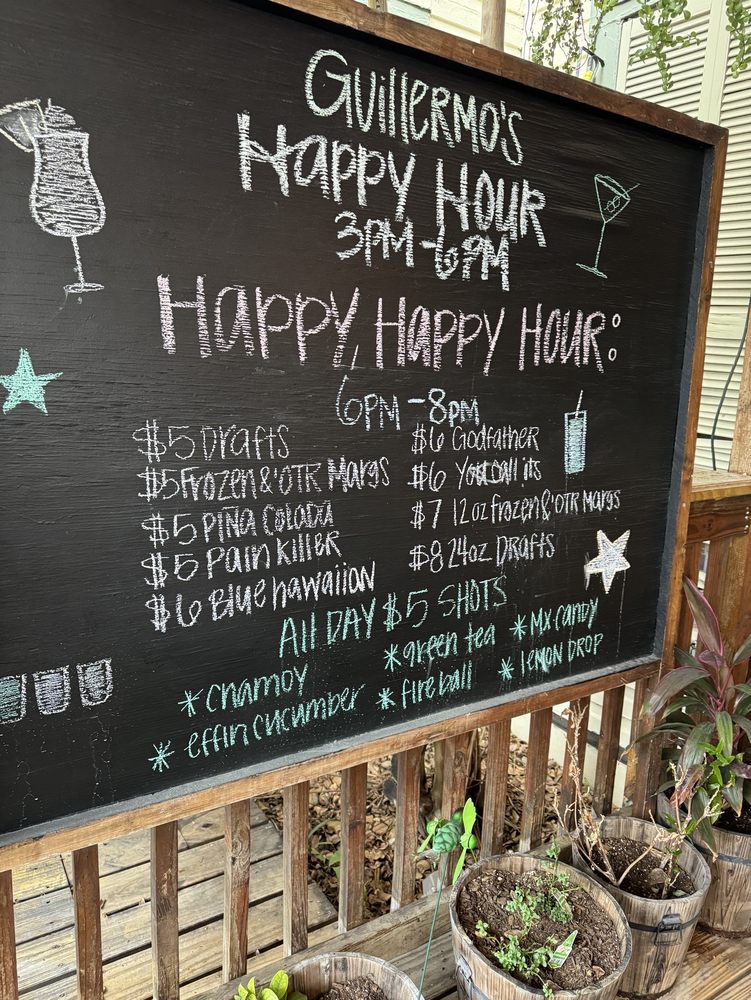 Guillermo's
Happy Hour
3PM-6PM
Happy, Happy Hour:
6PM-8PM
$5 Drafts
$5 Frozen & OTR Margs
$5 Piña Colada
$5 Pain Killer
$6 Blue Hawaiion
$6 Godfather
$6 You call its
$7 12oz frozen & OTR Margs
$8 24oz Drafts
All Day $5 Shots
*chamoy
*green tea
*Mx candy
*effin cucumber
*fireball
*lemon drop